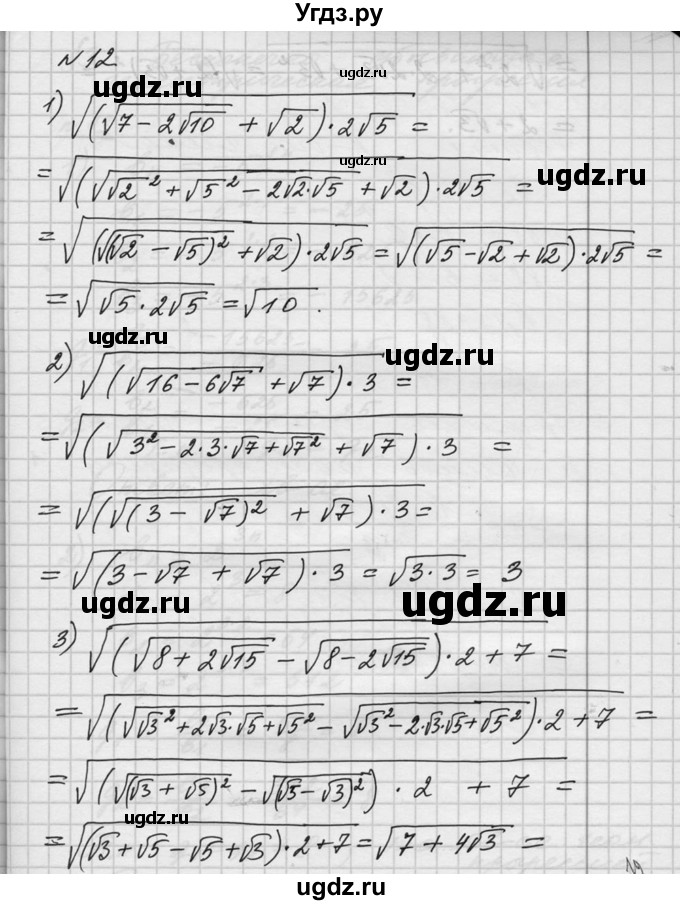 Угдз.ру
N 12
ugdz.ru
ugdz.ru
1) √((√(7 - 2√10) + √2) · 2√5) =
ugdz.ru
= √((√(√2² + √5² - 2√2·√5) + √2) · 2√5) =
ugdz.ru
= √((√((√2 - √5)²) + √2) · 2√5) = √((√5 - √2 + √2) · 2√5) =
= √(√5 · 2√5) = √10.
ugdz.ru
ugdz.ru
2) √((√(16 - 6√7) + √7) · 3) =
= √((√(3² - 2·3·√7 + √7²) + √7) · 3) =
= √((√((3 - √7)²) + √7) · 3) =
= √((3 - √7 + √7) · 3) = √(3·3) = 3
ugdz.ru
ugdz.ru
3) √((√(8 + 2√15) - √(8 - 2√15)) · 2 + 7) =
= √((√(√3² + 2√3·√5 + √5²) - √(√3² - 2·√3·√5 + √5²)) · 2 + 7) =
= √((√((√3 + √5)²) - √((√5 - √3)²)) · 2 + 7) =
ugdz.ru
= √((√3 + √5 - √5 + √3) · 2 + 7) = √(7 + 4√3) =
19
ugdz.ru